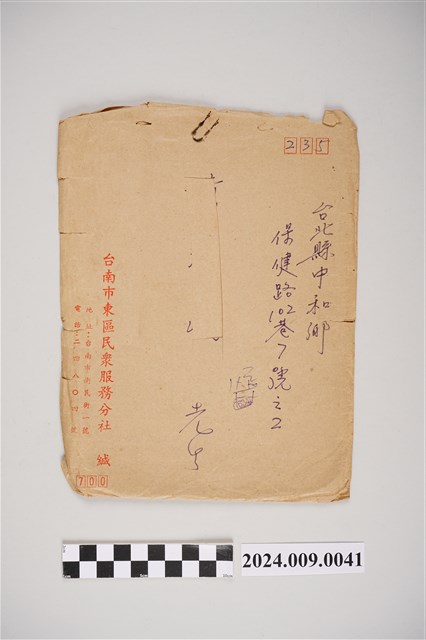 235
台北縣中和鄉
保健路102巷7號之2
先生
台南市東區民衆服務分社 緘
地址：台南市衛民街一號
電話：二四八〇四
700
2024.009.0041